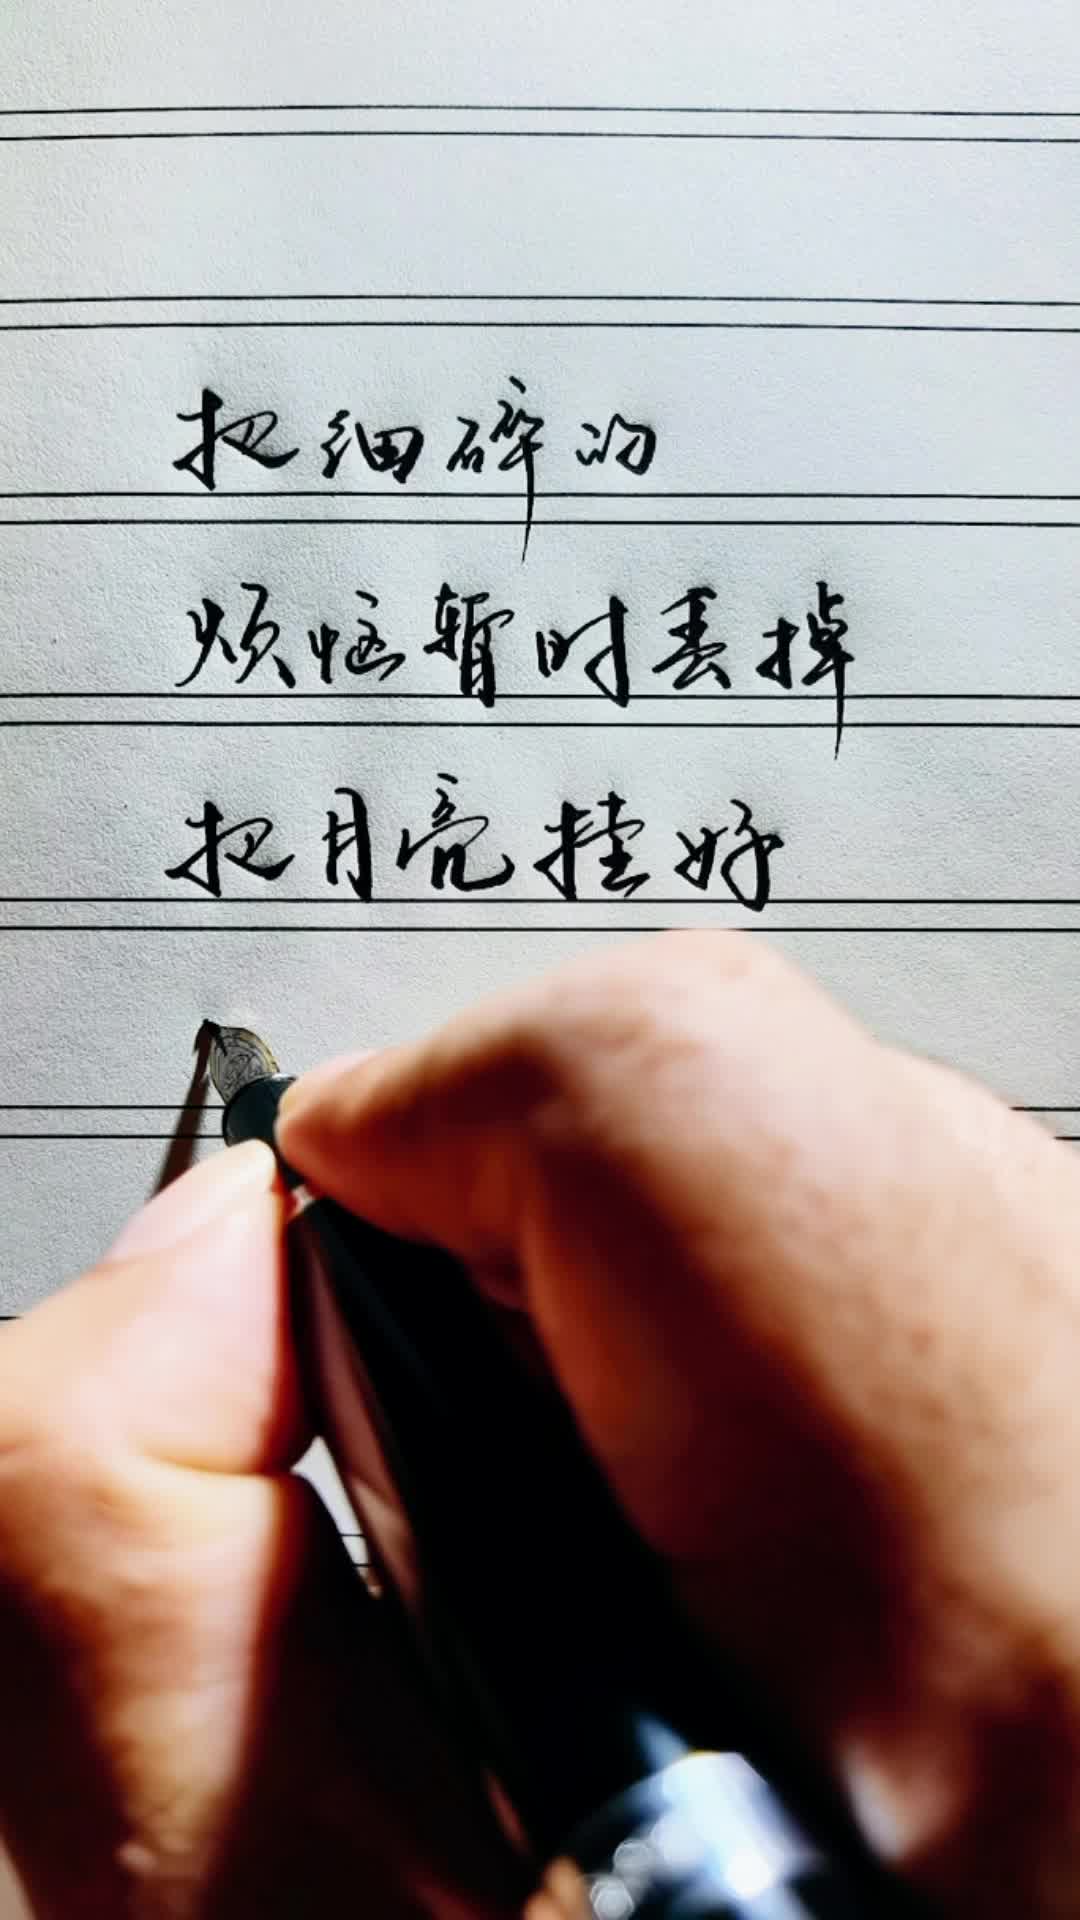 把细碎的
烦恼暂时丢掉
把月亮挂好